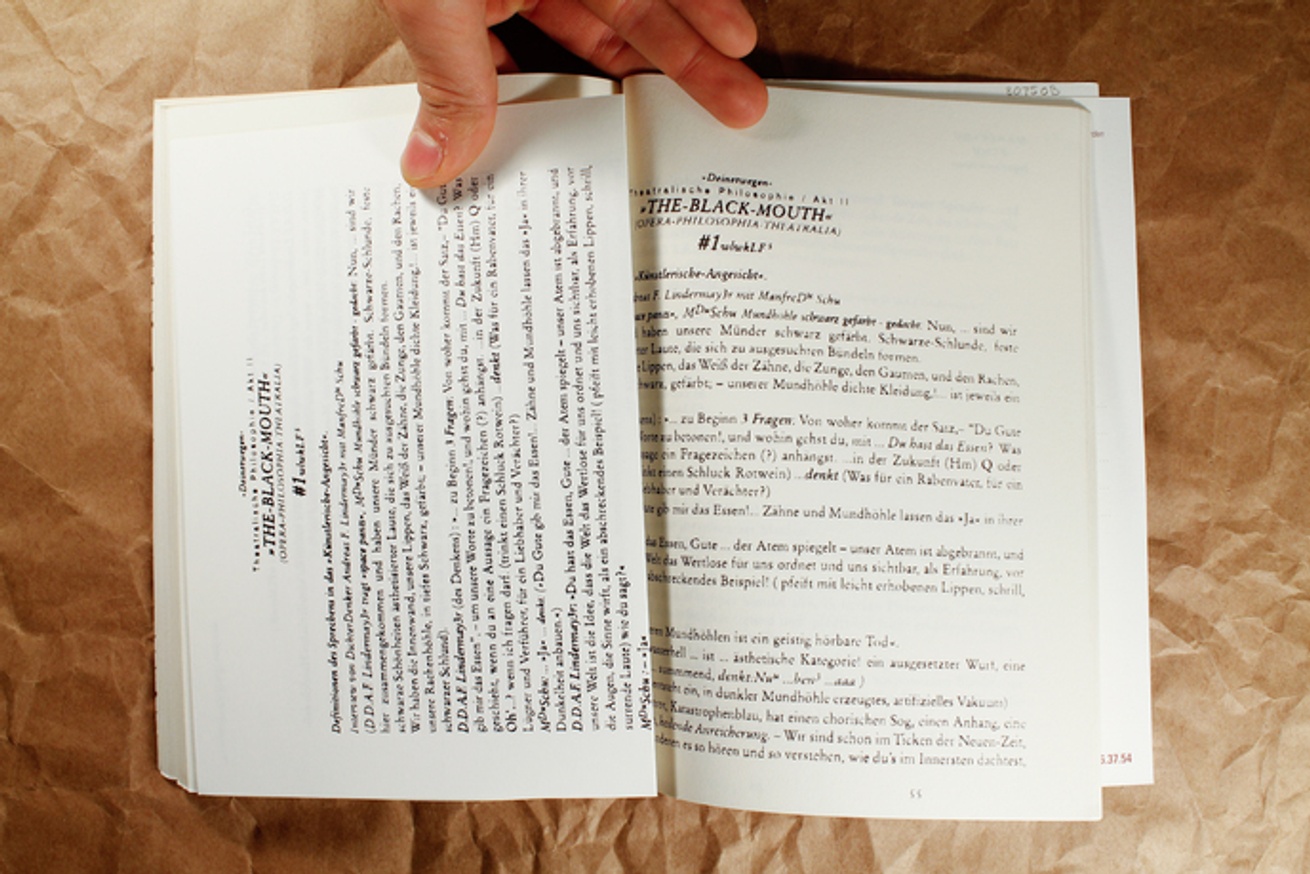 »Deinerwegen«
Theatralische Philosophie / Akt II
»THE-BLACK-MOUTH«
(OPERA-PHILOSOPHIA-THEATRALIA)
#1 wbwkLF³
Definitionen des Sprechens in das »Künstlerische-Angesicht«.
Interview von Dichter.Denker Andreas F. Lindermayr mit ManfreDᵂ Schu
(D.D.A.F. Lindermayr trägt »space pants«, Mᴰᵂ Schu Mundhöhle schwarz gefärbt - gedacht: Nun, ... sind wir
hier zusammengekommen und haben unsere Münder schwarz gefärbt. Schwarze-Schlünde, feste
schwarze Schönheiten ästhetisierter Laute, die sich zu ausgesuchten Bündeln formen.
Wir haben die Innenwand, unsere Lippen, das Weiß der Zähne, die Zunge, den Gaumen, und den Rachen,
unsere Rachenhöhle, in tiefes Schwarz, gefärbt; – unserer Mundhöhle dichte Kleidung,!... ist jeweils
schwarzer Schlund).
D.D.A.F. Lindermayr (des Denkens) : »... zu Beginn 3 Fragen: Von woher kommt der Satz,– "Du Gute
gib mir das Essen". – um unsere Worte zu betonen!, und wohin gehst du, mit ... Du hast das Essen? Was
geschieht, wenn du an eine Aussage ein Fragezeichen (?) anhängst. ...in der Zukunft (Hm) Q oder
Oh'...? wenn ich fragen darf. (trinkt einen Schluck Rotwein) ...denkt (Was für ein Rabenvater, für ein
Lügner und Verführer, für ein Liebhaber und Verächter?)
Mᴰᵂ Schu: ... »Ja« ... denkt. (»Du Gute gib mir das Essen!... Zähne und Mundhöhle lassen das »Ja« in ihrer
Dunkelheit anbauen.«)
D.D.A.F. Lindermayr: »Du hast das Essen, Gute ... der Atem spiegelt – unser Atem ist abgebrannt, und
unsere Welt ist die Idee, dass die Welt das Wertlose für uns ordnet und uns sichtbar, als Erfahrung, vor
die Augen, die Sinne wirft, als ein abschreckendes Beispiel! ( pfeift mit leicht erhobenen Lippen, schrill,
surrende Laute) wie du sagt?«
Mᴰᵂ Schu : – »Ja«
807508
»Deinerwegen«
Theatralische Philosophie / Akt II
»THE-BLACK-MOUTH«
(OPERA-PHILOSOPHIA-THEATRALIA)
#1 wbwkLF³
»Künstlerische-Angesicht«.
F. Lindermayr mit ManfreDᵂ Schu
pants«, Mᴰᵂ Schu Mundhöhle schwarz gefärbt - gedacht: Nun, ... sind wir
haben unsere Münder schwarz gefärbt. Schwarze-Schlünde, feste
Laute, die sich zu ausgesuchten Bündeln formen.
Lippen, das Weiß der Zähne, die Zunge, den Gaumen, und den Rachen,
gefärbt; – unserer Mundhöhle dichte Kleidung,!... ist jeweils ein
: »... zu Beginn 3 Fragen: Von woher kommt der Satz,– "Du Gute
zu betonen!, und wohin gehst du, mit ... Du hast das Essen? Was
ein Fragezeichen (?) anhängst. ...in der Zukunft (Hm) Q oder
einen Schluck Rotwein) ...denkt (Was für ein Rabenvater, für ein
und Verächter?)
gib mir das Essen!... Zähne und Mundhöhle lassen das »Ja« in ihrer
das Essen, Gute ... der Atem spiegelt – unser Atem ist abgebrannt, und
Welt das Wertlose für uns ordnet und uns sichtbar, als Erfahrung, vor
abschreckendes Beispiel! ( pfeift mit leicht erhobenen Lippen, schrill,
Mundhöhlen ist ein geistig hörbare Tod«.
... ist ... ästhetische Kategorie! ein ausgesetzter Wurf, eine
summend, denkt:Nuⁿ ...ben³ ...aaa )
ein, in dunkler Mundhöhle erzeugtes, artifizielles Vakuum)
Katastrophenblau, hat einen chorischen Sog, einen Anhang, eine
Anreicherung. – Wir sind schon im Ticken der Neuen-Zeit,
es so hören und so verstehen, wie du's im Innersten dachtest,
55
5.37.54